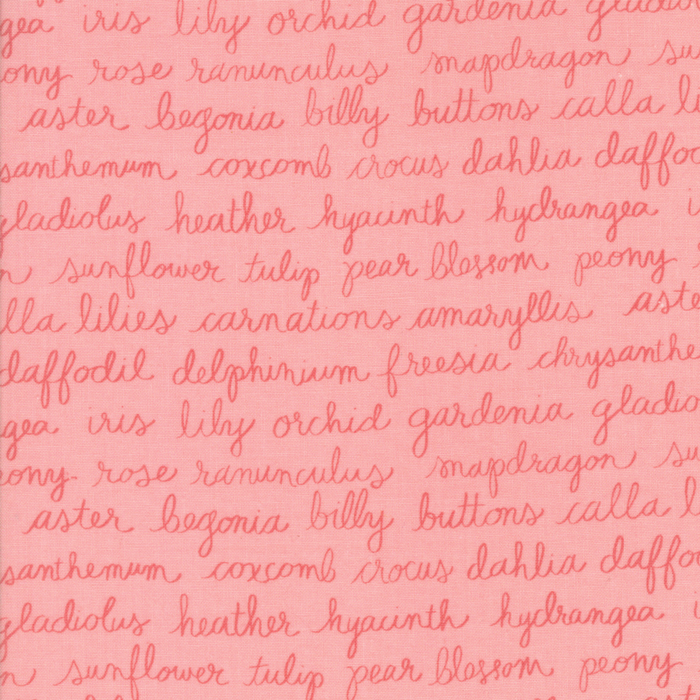 gea iris lily orchid gardenia gladio
ony rose ranunculus snapdragon su
aster begonia billy buttons calla li
santhemum coxcomb crocus dahlia daffo
gladiolus heather hyacinth hydrangea i
n sunflower tulip pear blossom peony
lla lilies carnations amaryllis aste
daffodil delphinium freesia chrysanthe
gea iris lily orchid gardenia gladio
eony rose ranunculus snapdragon su
aster begonia billy buttons calla l
santhemum coxcomb crocus dahlia daffo
gladiolus heather hyacinth hydrangea i
n sunflower tulip pear blossom peony